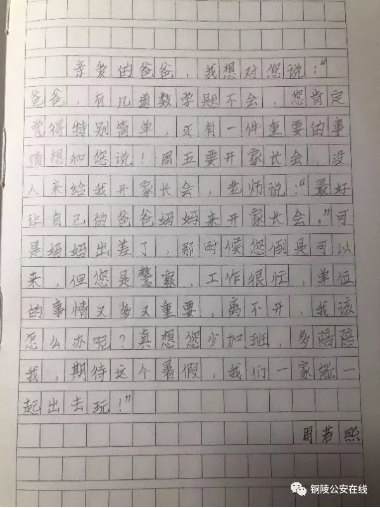 亲爱的爸爸，我想对您说：“
爸爸，有几道数学题不会，您肯定
觉得特别简单，还有一件重要的事
情想和您说！周五要开家长会，没
人来给我开家长会，老师说：“最好
让自己的爸爸妈妈来开家长会。”可
是妈妈出差了，那时候您倒是可以
来，但您是警察，工作很忙，单位
的事情又多又重要，离不开，我该
怎么办呢？真想您少加班，多陪陪
我，期待这个暑假，我们一家能一
起出去玩！”
周若熙
铜陵公安在线